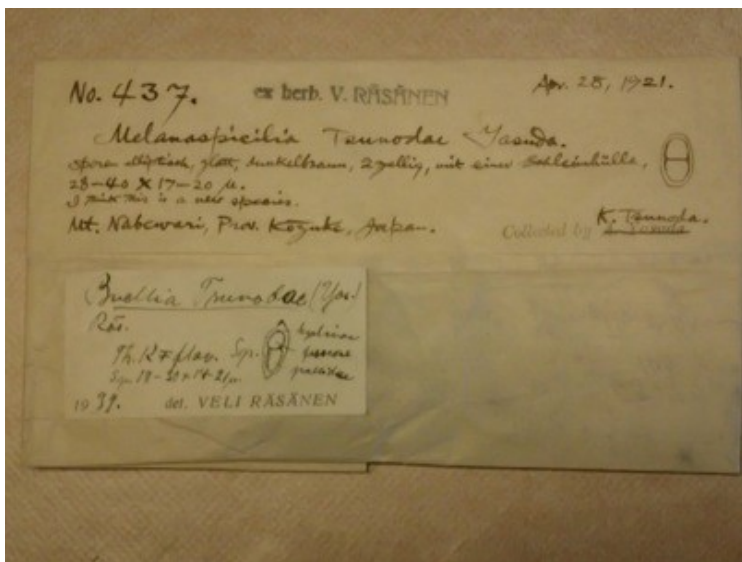 No. 437. ex herb. V. RÄSÄNEN Apr. 28, 1921.
Melanaspicilia Tsunodae Yasuda.
Sporen elliptisch, glatt, dunkelbraun, 2 zellig, mit einer Schleimhülle,
28-40 X 17-20 µ.
I think this is a new species.
Mt. Nabewari, Prov. Kozuke, Japan.
Collected by K. Tsunoda.
Buellia Tsunodae (Yas.)
Räs.
Th. K + flav. Sp.
1939. det. VELI RÄSÄNEN